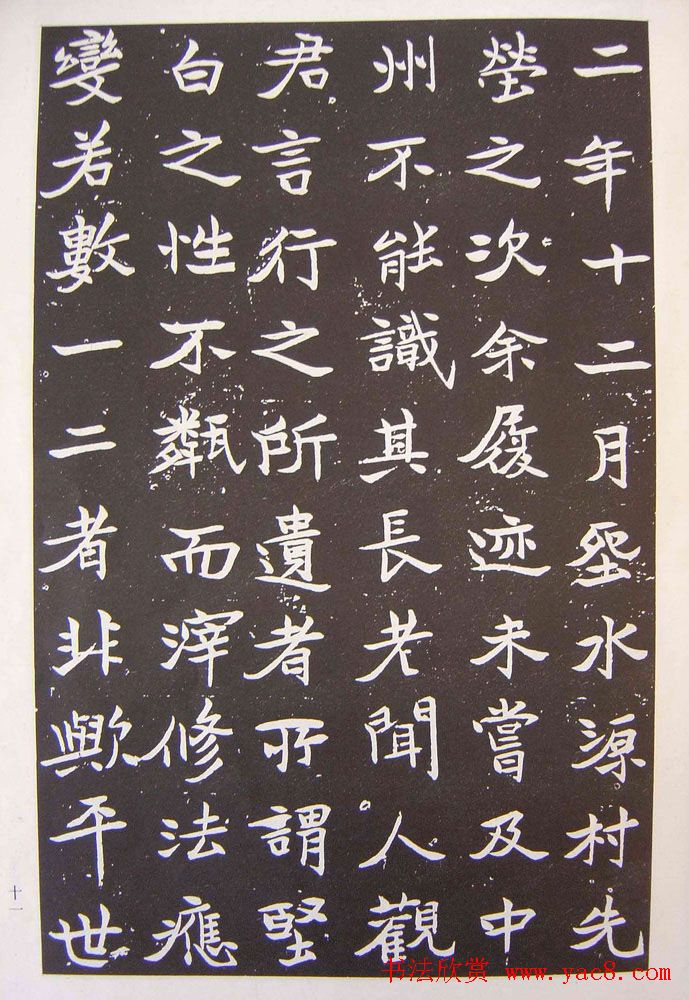 二年十二月水源村先
塋之次余履迹未嘗及中
州不能識其長老聞人觀
君言行之所遺者所謂堅
白之性不甐而滓修法應
變若數一二者非歟平世
十一
书法欣赏 www.yac8.com